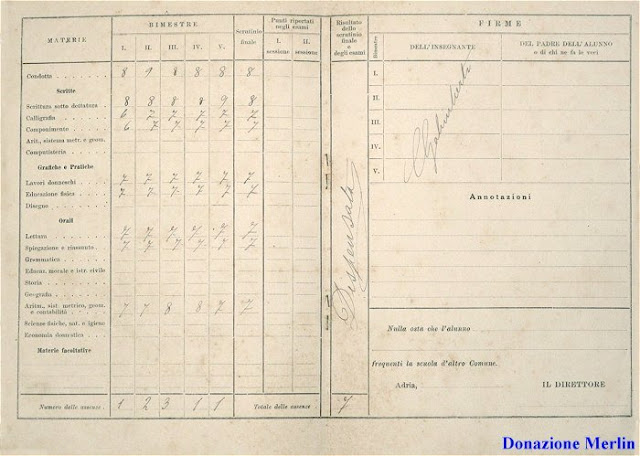 MATERIE
BIMESTRE
I. II. III. IV. V.
Scrutinio finale
Punti riportati negli esami
I. sessione II. sessione
Risultato dello scrutinio finale e degli esami
Bimestre
FIRME
DELL'INSEGNANTE
DEL PADRE DELL'ALUNNO
o di chi ne fa le veci
Condotta 8 9 8 8 8 8
Scritte
Scrittura sotto dettatura 8 8 8 8 9 8
Calligrafia 6 7 7 7 7 7
Componimento 6 7 7 7 7 7
Arit., sistema metr. e geom.
Computisteria
Grafiche e Pratiche
Lavori donneschi 7 7 7 7 7 7
Educazione fisica 7 7 7 7 7 7
Disegno
Orali
Lettura 7 7 7 7 7 7
Spiegazione e riassunto 7 7 7 7 7 7
Grammatica
Educaz. morale e istr. civile
Storia
Geografia
Aritm., sist. metrico, geom.
e contabilità 7 7 8 8 7 7
Scienze fisiche, nat. e igiene
Economia domestica
Materie facoltative
Numero delle assenze 1 2 3 1 1
Totale delle assenze 7
Dispensata
I.
II.
III.
IV.
V.
Annotazioni
Nulla osta che l'alunno
frequenti la scuola d'altro Comune.
Adria,
IL DIRETTORE
Donazione Merlin